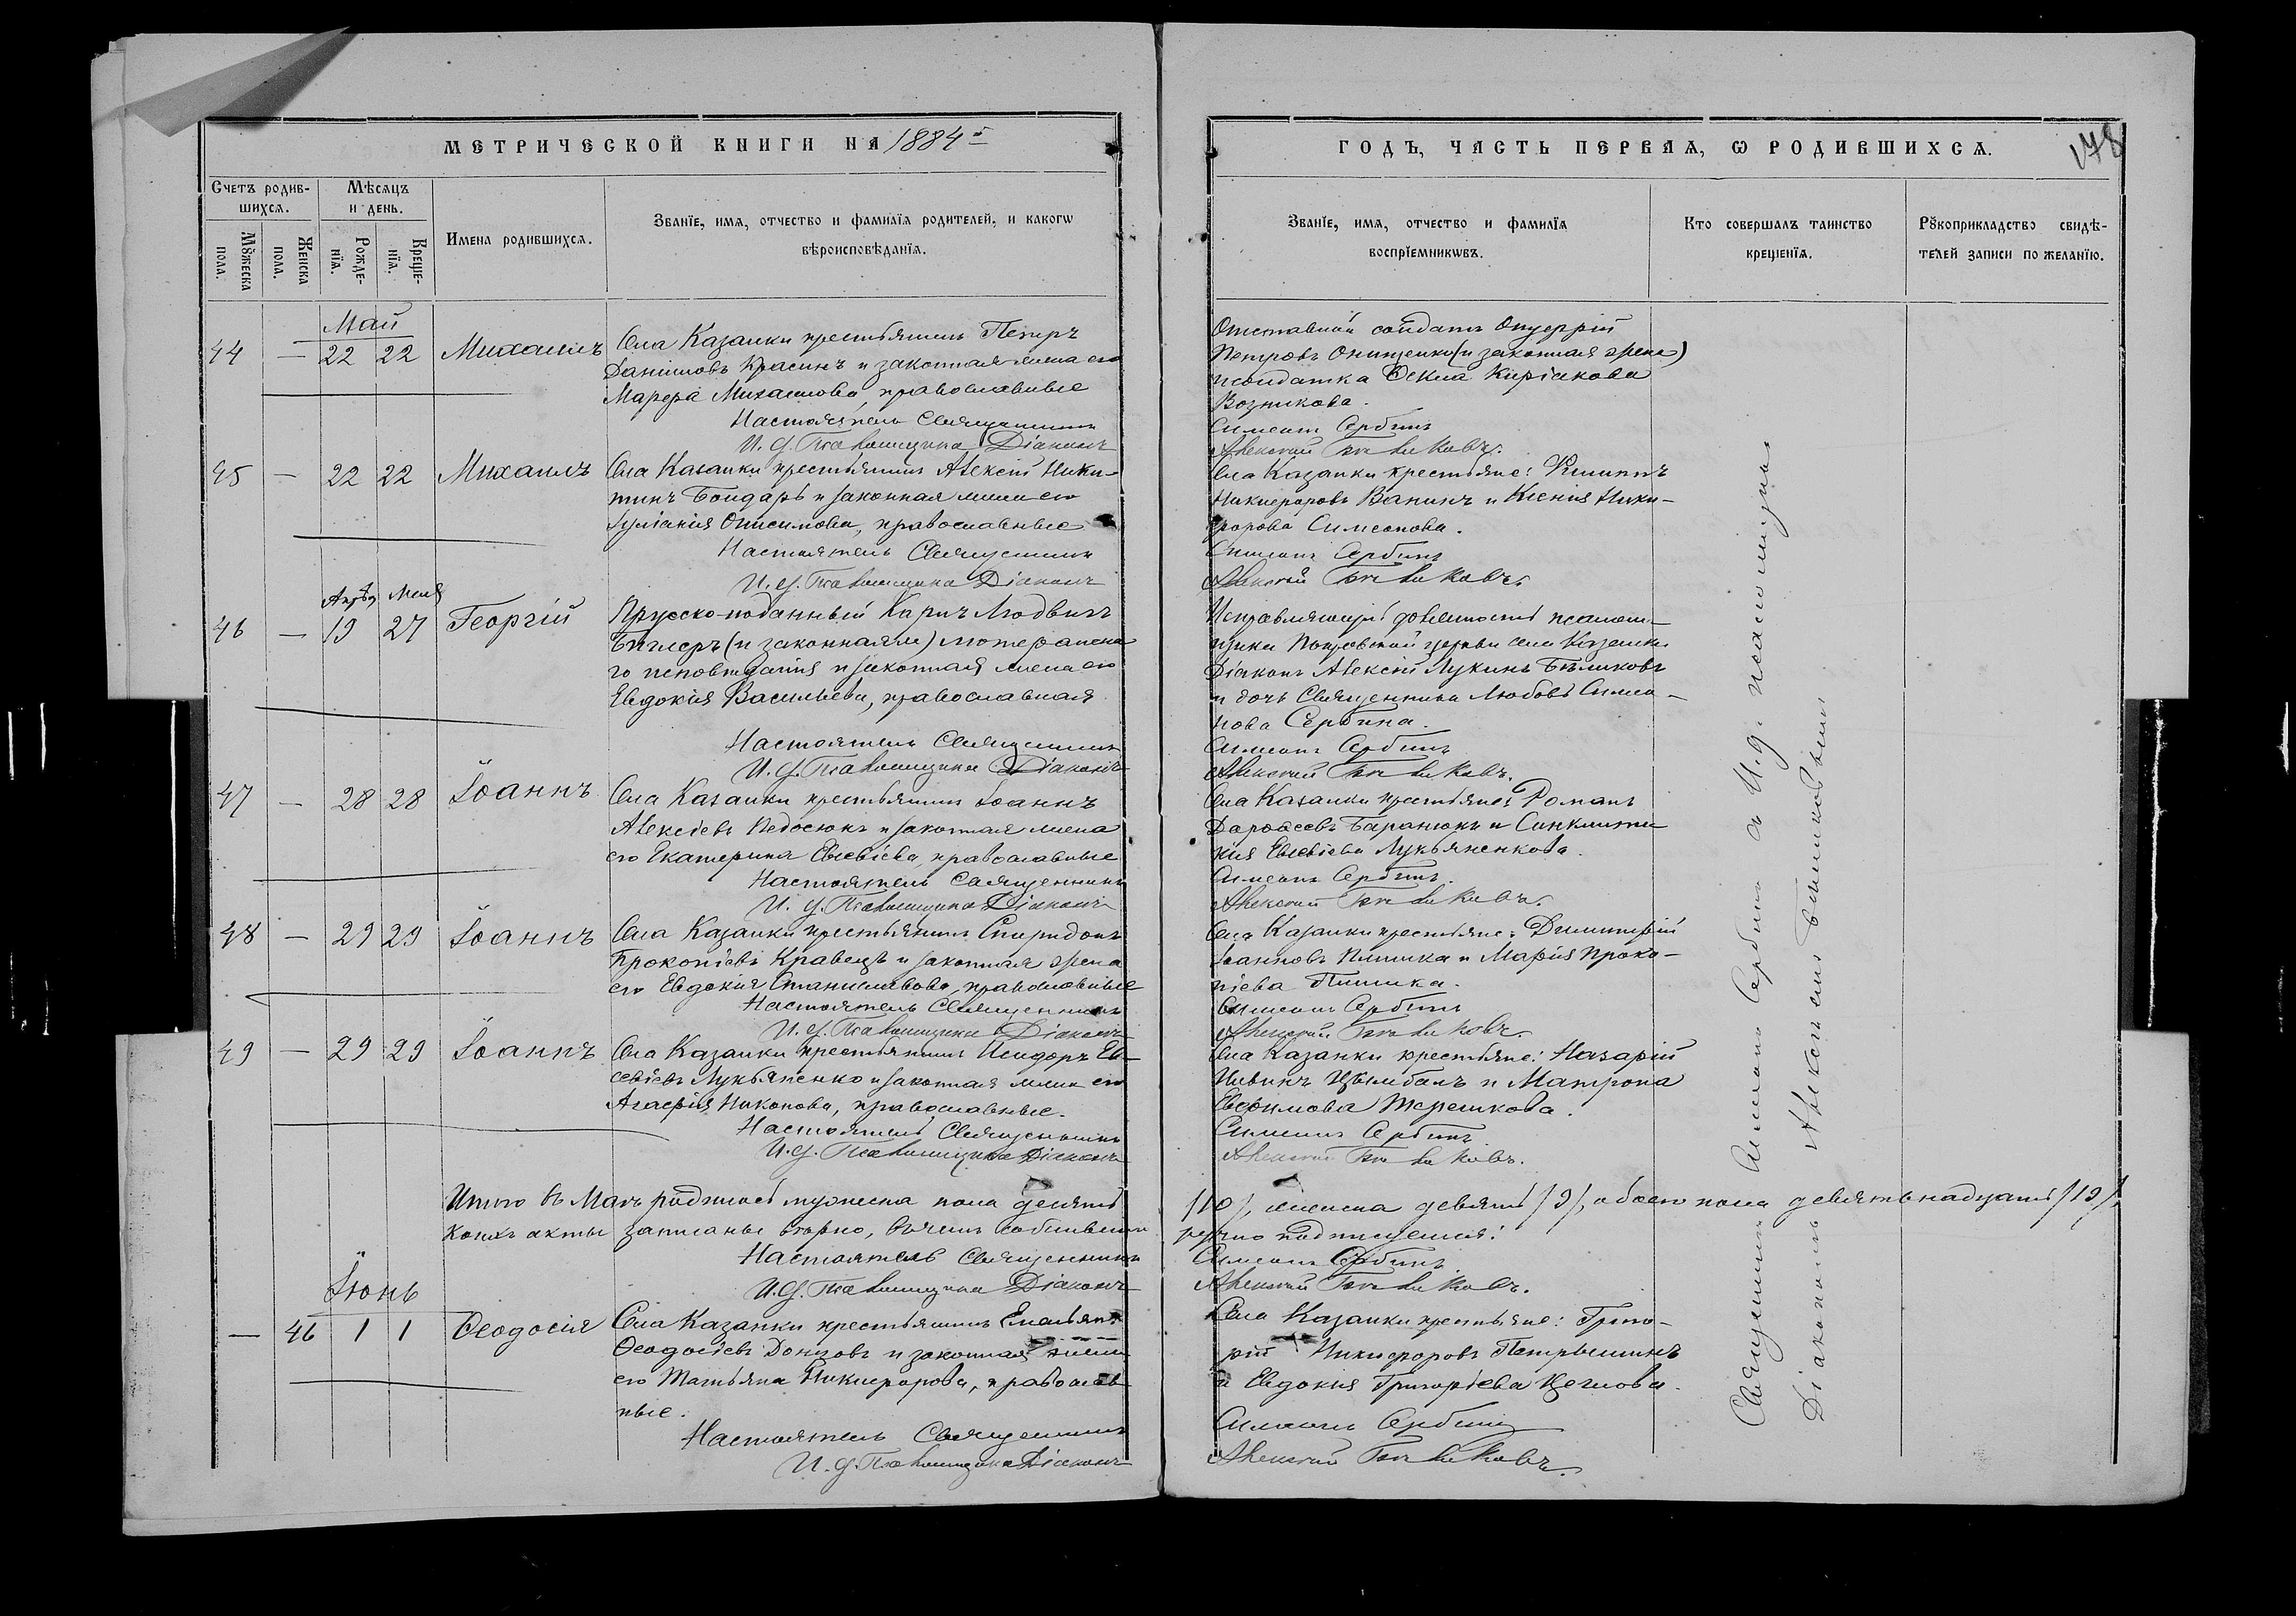 МЕТРИЧЕСКОЙ КНИГИ НА 1884й
ГОДЪ, ЧАСТЬ ПЕРВАЯ, Ѡ РОДИВШИХСѦ.
178
Счетъ родив-
шихсѧ.
Мѣсѧцъ
и день.
Имена родившихсѧ.
Званїе, имѧ, отчество и фамилїѧ родителей, и какогѡ
вѣроисповѣданїѧ.
Мꙋжеска
пола.
Женска
пола.
Рожде-
нїѧ.
Креще-
нїѧ.
Званїе, имѧ, отчество и фамилїѧ
воспрїемникѡвъ.
Кто совершалъ таинство
крещенїѧ.
Рꙋкоприкладство свидѣ-
телей записи по желанїю.
Май
44 — 22 22 Михаилъ
Села Казанки крестьянинъ Петръ
Даниловъ Красинъ и законная жена его
Марфа Михаилова, православные
Настоятель Священникъ
И. д. Псаломщика Діаконъ
Отставной солдатъ Онуфрій
Петровъ Онищенко (и законная жена)
и солдатка Ѳекла Киріакова
Возникова.
Симеонъ Сербинъ
Алексій Бѣликовъ.
45 — 22 22 Михаилъ
Села Казанки крестьянинъ Алексій Ники-
тинъ Бондарь и законная жена его
Іуліанія Онисимова, православные
Настоятель Священникъ
И. д. Псаломщика Діаконъ
Села Казанки крестьяне: Филиппъ
Никифоровъ Ванинъ и Ксенія Ники-
форова Симеонова.
Симеонъ Сербинъ
Алексій Бѣликовъ.
Апрѣл Мая
46 — 19 27 Георгій
Прусско-поданный Карлъ Людвигъ
(и законная) лютеранска-
го исповѣданія и законная жена его
Евдокія Васильева, православная
Настоятель Священникъ
И. д. Псаломщика Діаконъ
Исправляющій должность псалом-
щика Покровской церкви села Казанки
Діаконъ Алексій Лукинъ Бѣликовъ
и дочь Священника Любовь Симео-
нова Сербина.
Симеонъ Сербинъ
Алексій Бѣликовъ.
47 — 28 28 Іоаннъ
Села Казанки крестьянинъ Іоаннъ
Алексіевъ Недосюкъ и законная жена
его Екатерина Евсевіева, православные
Настоятель Священникъ
И. д. Псаломщика Діаконъ
Села Казанки крестьяне: Романъ
Дороѳеевъ Баранюкъ и Синклити-
кія Евсевіева Лукьяненкова.
Симеонъ Сербинъ.
Алексій Бѣликовъ.
48 — 29 29 Іоаннъ
Села Казанки крестьянинъ Спиридонъ
Прокопіевъ Кравецъ и законная жена
его Евдокія Станиславова, православные
Настоятель Священникъ
И. д. Псаломщика Діаконъ
Села Казанки крестьяне: Димитрій
Іоанновъ и Марія Проко-
піева
Симеонъ Сербинъ
Алексій Бѣликовъ.
49 — 29 29 Іоаннъ
Села Казанки крестьянинъ Исидоръ Ев-
севіевъ Лукьяненко и законная жена его
Агафія Никонова, православные.
Настоятель Священникъ
И. д. Псаломщика Діаконъ
Села Казанки крестьяне: Назарій
Цымбалъ и Матрона
Евфимова Терешкова.
Симеонъ Сербинъ
Алексій Бѣликовъ.
Итого въ Маѣ родилось мужеска пола десять /10/, женска девять /9/, обоего пола девятьнадцать /19/,
коихъ акты записаны вѣрно, въ чемъ собственно ручно подписуемся:
Настоятель Священникъ Симеонъ Сербинъ
И. д. Псаломщика Діаконъ Алексій Бѣликовъ.
Іюнь
— 46 1 1 Ѳеодосія
Села Казанки крестьянинъ Емельянъ
Ѳеодосіевъ Донцовъ и законная жена
его Татьяна Никифорова, православ-
ные.
Настоятель Священникъ
И. д. Псаломщика Діаконъ
Села Казанки крестьяне: Григо-
рій Никифоровъ
и Евдокия Григоріева
Симеонъ Сербинъ
Алексій Бѣликовъ.
Священникъ Симеонъ Сербинъ съ И. д. псаломщика
Діакономъ Алексіемъ Бѣликовымъ